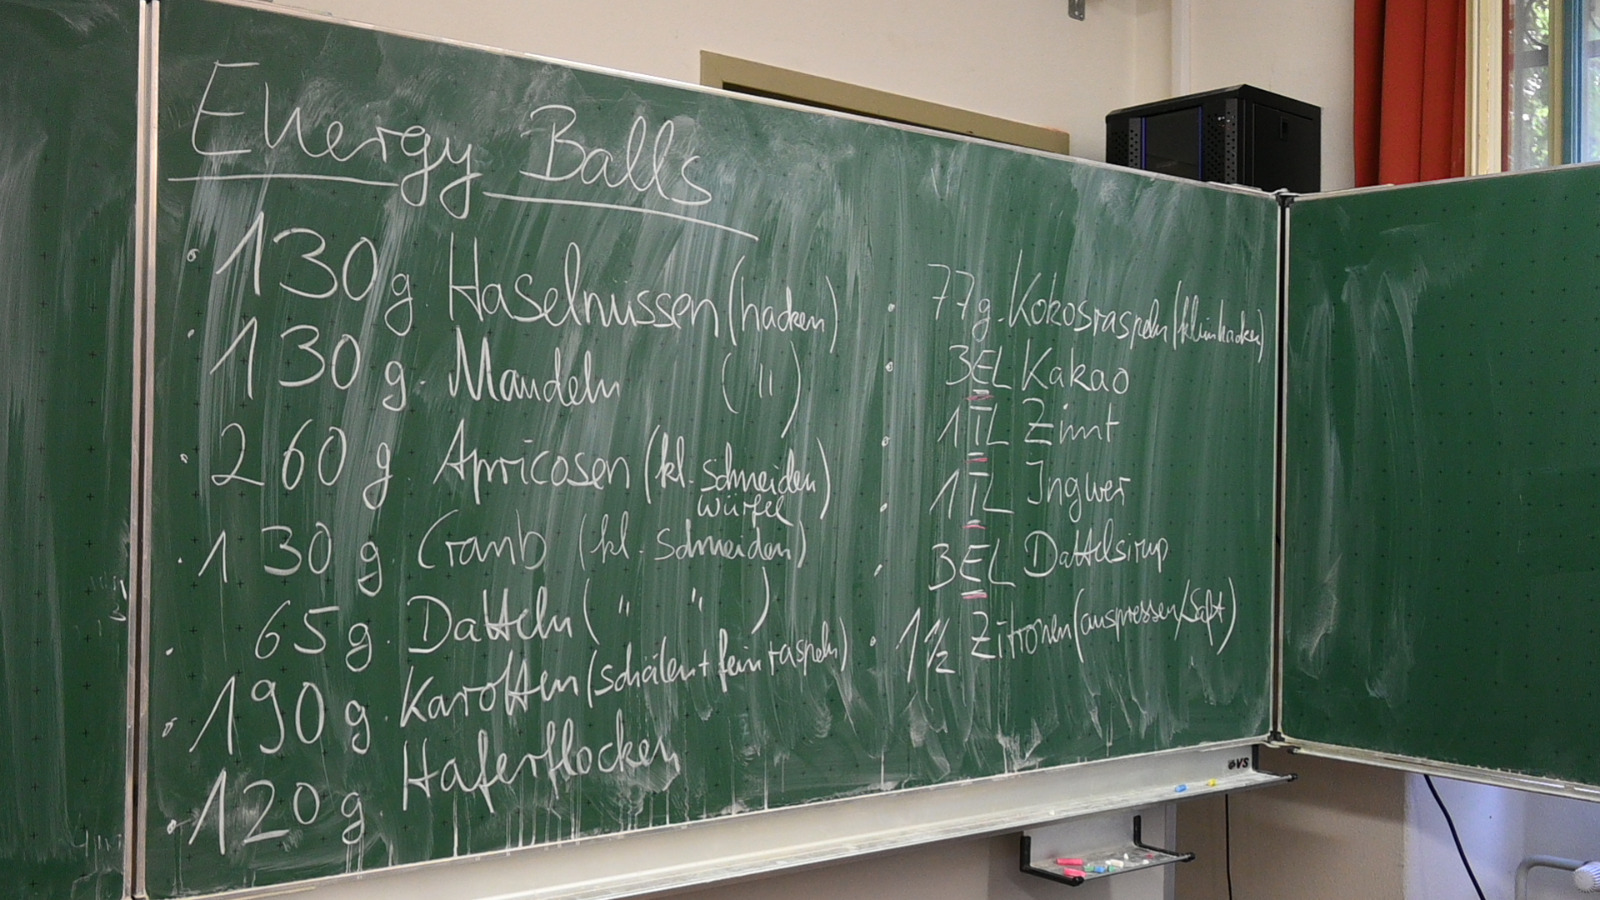 Energy Balls
130g Haselnüssen (hacken)
130g. Mandeln ( " )
260g Apricosen (kl. schneiden)
würfel
130g. Cranb (kl. schneiden)
65g. Datteln ( " " )
190g. Karotten (schälen + fein raspeln)
120g. Haferflocken
77g. Kokosraspeln (klein hacken)
3EL Kakao
1TL Zimt
1TL Ingwer
3EL Dattelsirup
1 1/2 Zitronen (auspressen/Saft)
VS